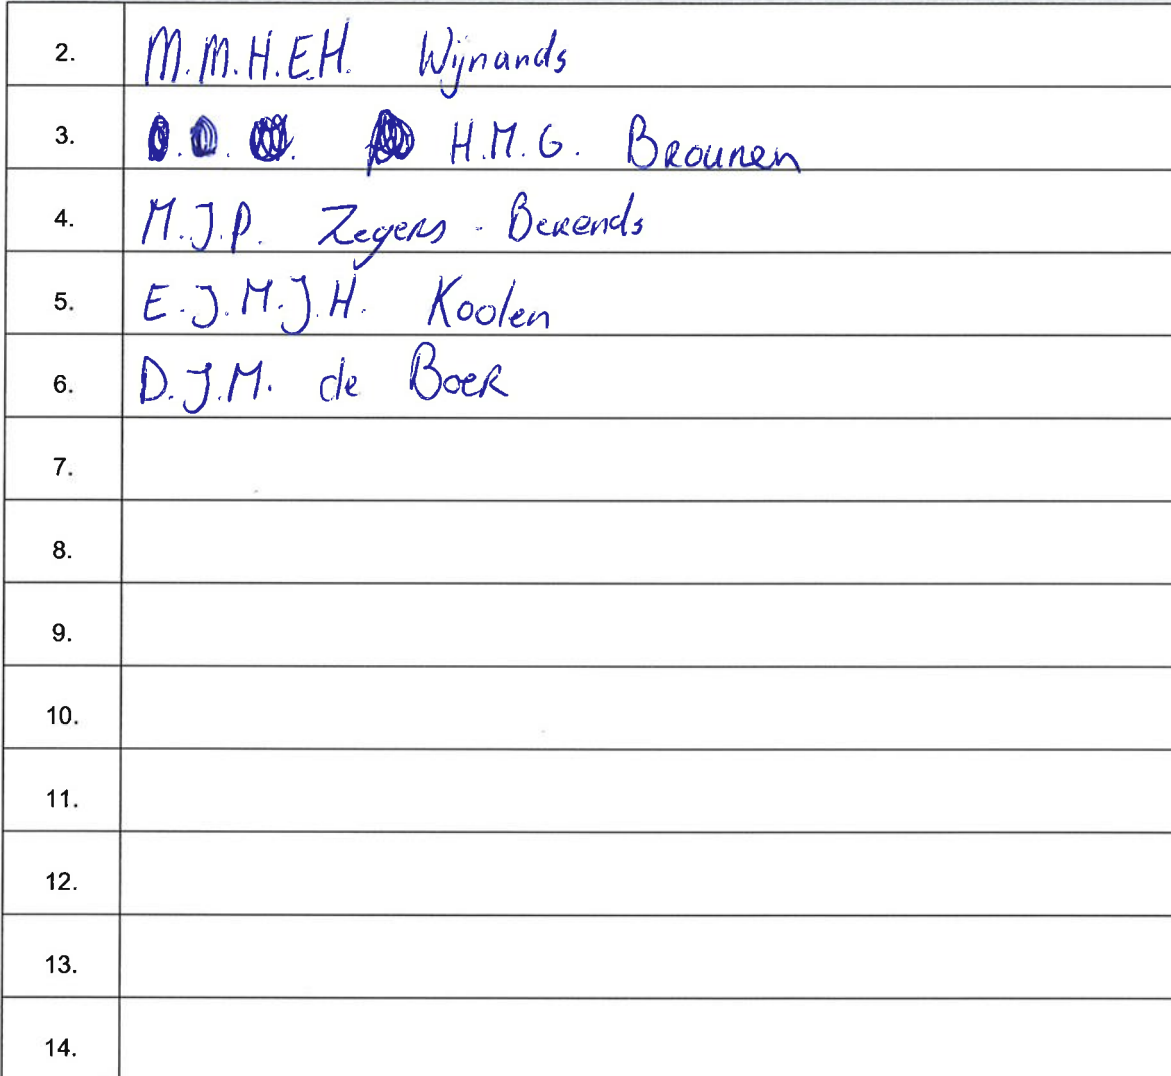 2. M.M.H.E.H. Wijnands
3. H.M.G. Brounen
4. M.J.P. Zegers - Berends
5. E.J.M.J.H. Koolen
6. D.J.M. de Boer
7.
8.
9.
10.
11.
12.
13.
14.